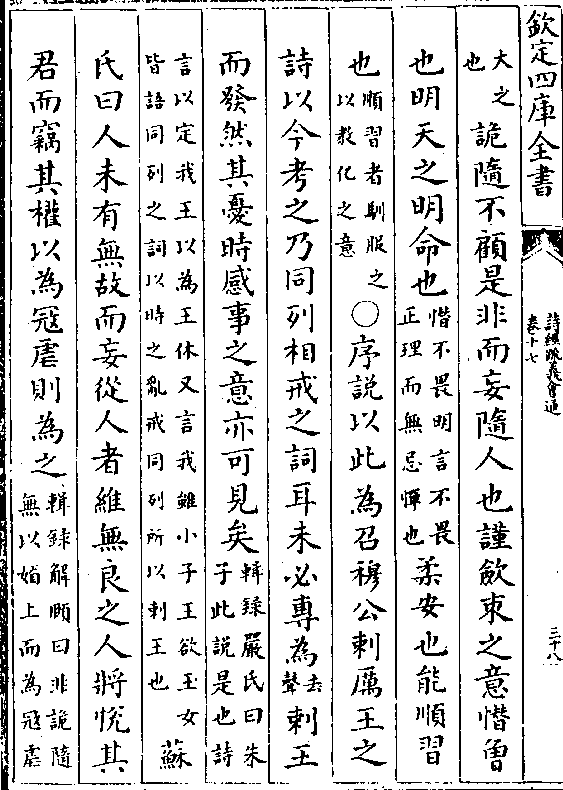 欽定四庫全書
詩經疏義會通
卷十七
三十八
大之
也
詭隨不顧是非而妄隨人也謹斂束之意憯曾
也明天之明命也
憯不畏明言不畏
正理而無忌憚也
柔安也能順習
也
順習者馴服之
以教化之意
○序說以此為召穆公刺厲王之
詩以今考之乃同列相戒之詞耳未必專為
去
聲
刺王
而發然其憂時感事之意亦可見矣
輯録嚴氏曰朱
子此說是也詩
言以定我王以為王休又言我雖小子王欲玉女
皆語同列之詞以時之亂戒同列所以刺王也
蘇
氏曰人未有無故而妄從人者維無良之人將悅其
君而竊其權以為寇虐則為之
輯録解頤曰非詭隨
無以媚上而為寇虐